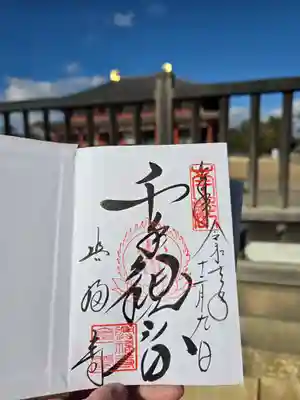 奉拝
令和
十二月九日
千手観音
興福寺